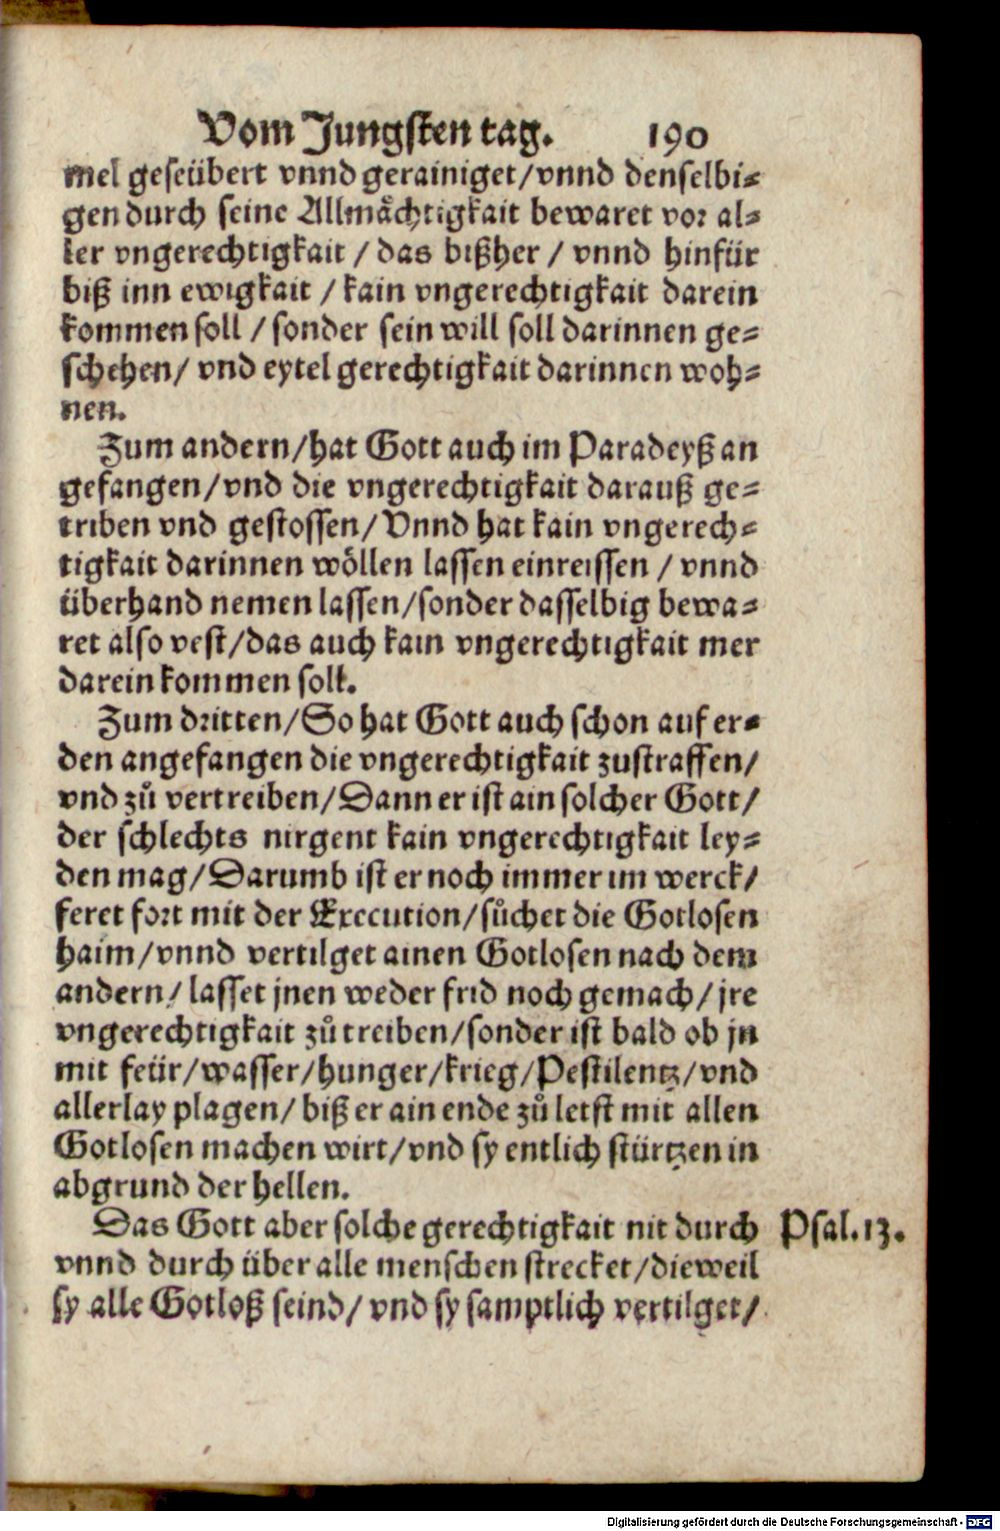 Vom Jungsten tag. 190
mel geseübert vnnd gerainiget/vnnd denselbi⸗
gen durch seine Allmaͤchtigkait bewaret vor al⸗
ler vngerechtigkait / das bißher / vnnd hinfür
biß inn ewigkait / kain vngerechtigkait darein
kommen soll / sonder sein will soll darinnen ge⸗
schehen/ vnd eytel gerechtigkait darinnen woh⸗
nen.
Zum andern/hat Gott auch im Paradeyß an
gefangen/vnd die vngerechtigkait darauß ge⸗
triben vnd gestossen/Vnnd hat kain vngerech⸗
tigkait darinnen woͤllen lassen einreissen / vnnd
überhand nemen lassen/sonder dasselbig bewa⸗
ret also vest/das auch kain vngerechtigkait mer
darein kommen soll.
Zum dritten/So hat Gott auch schon auf er⸗
den angefangen die vngerechtigkait zustraffen/
vnd zuͦ vertreiben/Dann er ist ain solcher Gott/
der schlechts nirgent kain vngerechtigkait ley⸗
den mag/Darumb ist er noch immer im werck/
feret fort mit der Execution/suͦchet die Gotlosen
haim/vnnd vertilget ainen Gotlosen nach dem
andern/ lasset jnen weder frid noch gemach/ jre
vngerechtigkait zuͦ treiben/sonder ist bald ob jn
mit feür/wasser/hunger/krieg/Pestilentz/vnd
allerlay plagen/ biß er ain ende zuͦ letst mit allen
Gotlosen machen wirt/vnd sy entlich stürtzen in
abgrund der hellen.
Das Gott aber solche gerechtigkait nit durch Psal.13.
vnnd durch über alle menschen strecket/dieweil
sy alle Gotloß seind/ vnd sy samptlich vertilget/
Digitalisierung gefördert durch die Deutsche Forschungsgemeinschaft - DFG